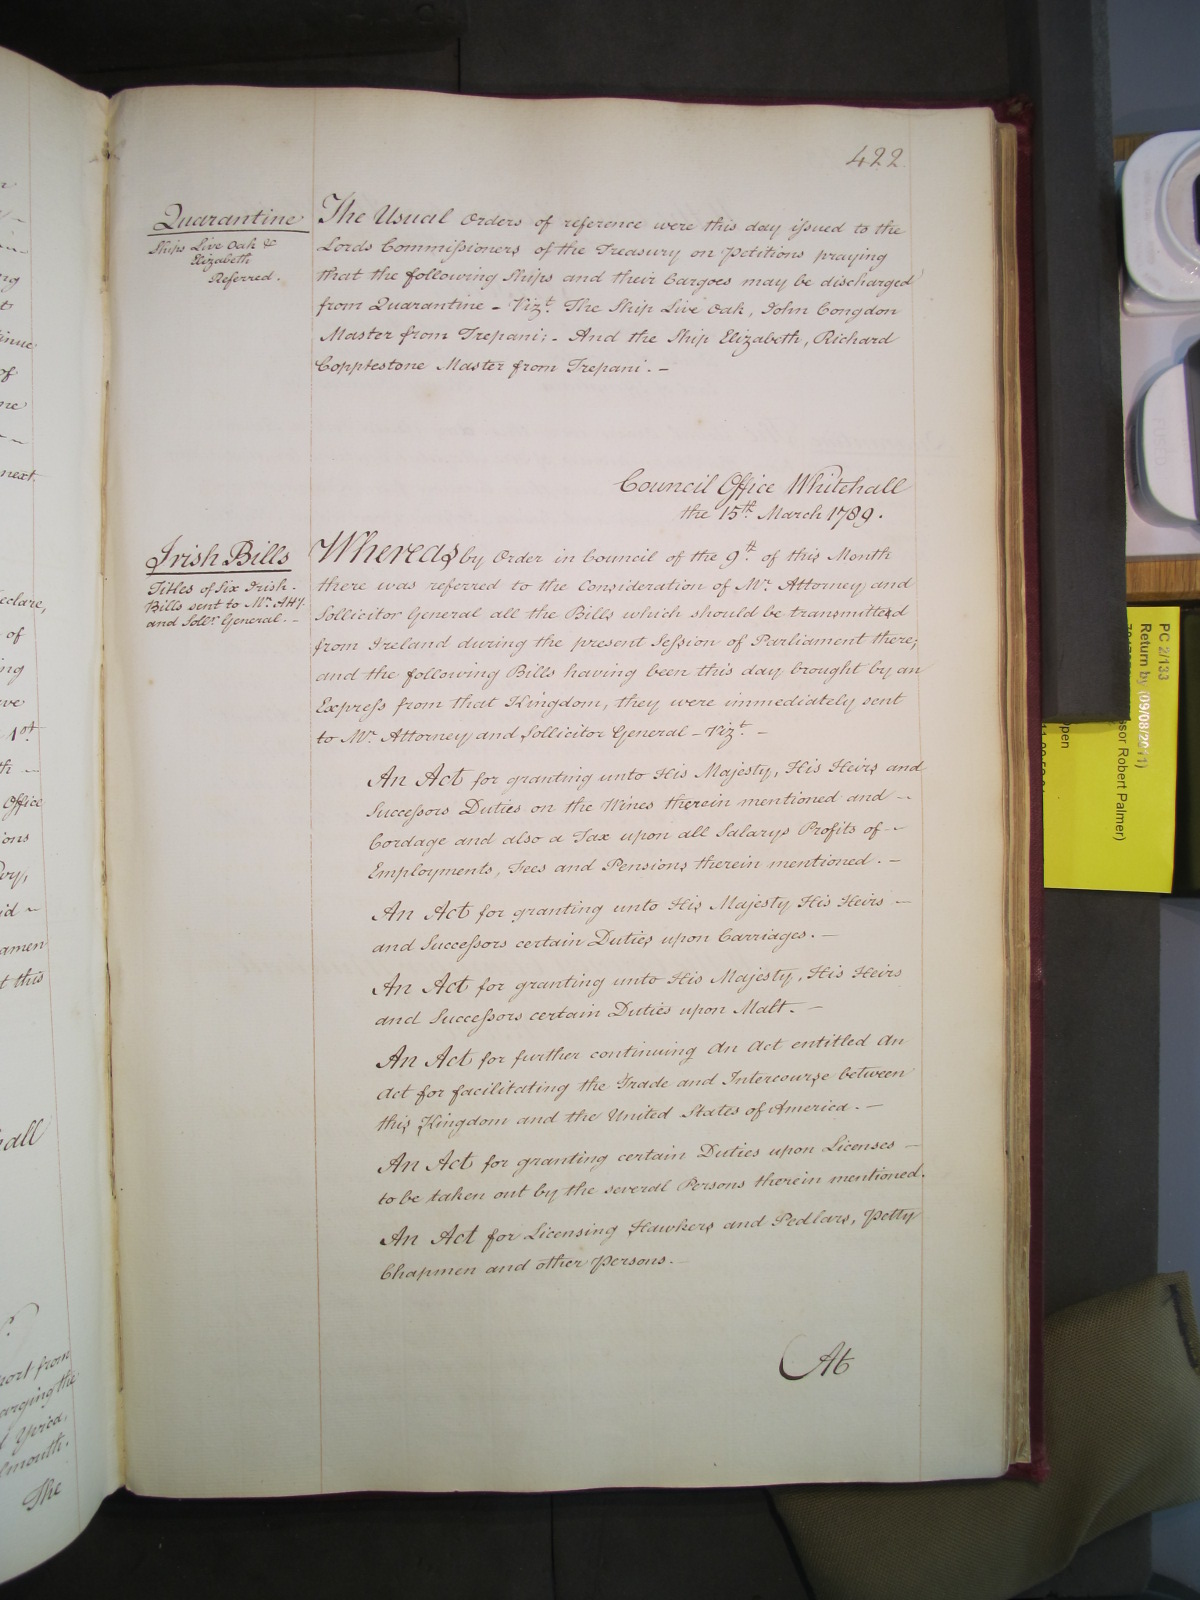 422
Quarantine
Ships Live Oak &
Elizabeth
Referred.
The Usual Orders of reference were this day issued to the
Lords Commissioners of the Treasury on Petitions praying
that the following Ships and their Cargoes may be discharged
from Quarantine - Vizt. The Ship Live Oak, John Congdon
Master from Trepani; - And the Ship Elizabeth, Richard
Copplestone Master from Trepani. -
Council Office Whitehall
the 15th. March 1789.
Irish Bills
Titles of Six Irish
Bills sent to Mr. Atty.
and Sollr. General. -
Whereas by Order in Council of the 9th. of this Month
there was referred to the Consideration of Mr. Attorney and
Sollicitor General all the Bills which should be transmitted
from Ireland during the present Session of Parliament there;
and the following Bills having been this day brought by an
Express from that Kingdom, they were immediately sent
to Mr. Attorney and Sollicitor General - Vizt. -
An Act for granting unto His Majesty, His Heirs and
Successors Duties on the Wines therein mentioned and -
Cordage and also a Tax upon all Salarys Profits of -
Employments, Fees and Pensions therein mentioned. -
An Act for granting unto His Majesty His Heirs -
and Successors certain Duties upon Carriages. -
An Act for granting unto His Majesty, His Heirs
and Successors certain Duties upon Malt. -
An Act for further continuing an Act entitled an
Act for facilitating the Trade and Intercourse between
this Kingdom and the United States of America. -
An Act for granting certain Duties upon Licenses -
to be taken out by the several Persons therein mentioned.
An Act for Licensing Hawkers and Pedlars, Petty
Chapmen and other Persons.
At
PC 2/133
Return by (09/08/2011)
sor Robert Palmer)
pen
next.
eclare,
of
Office
ions
amen
t this
hall
port from
arging the
The